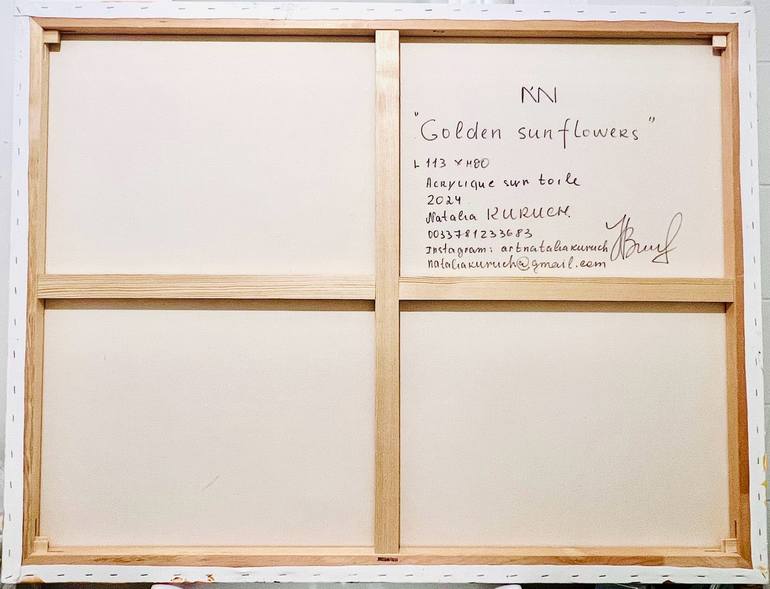 "Golden sunflowers"
L 113 x H80
Acrylique sur toile
2024
Natalia KURUCH.
0033781233683
Instagram: artnataliakuruch
nataliakuruch@gmail.com